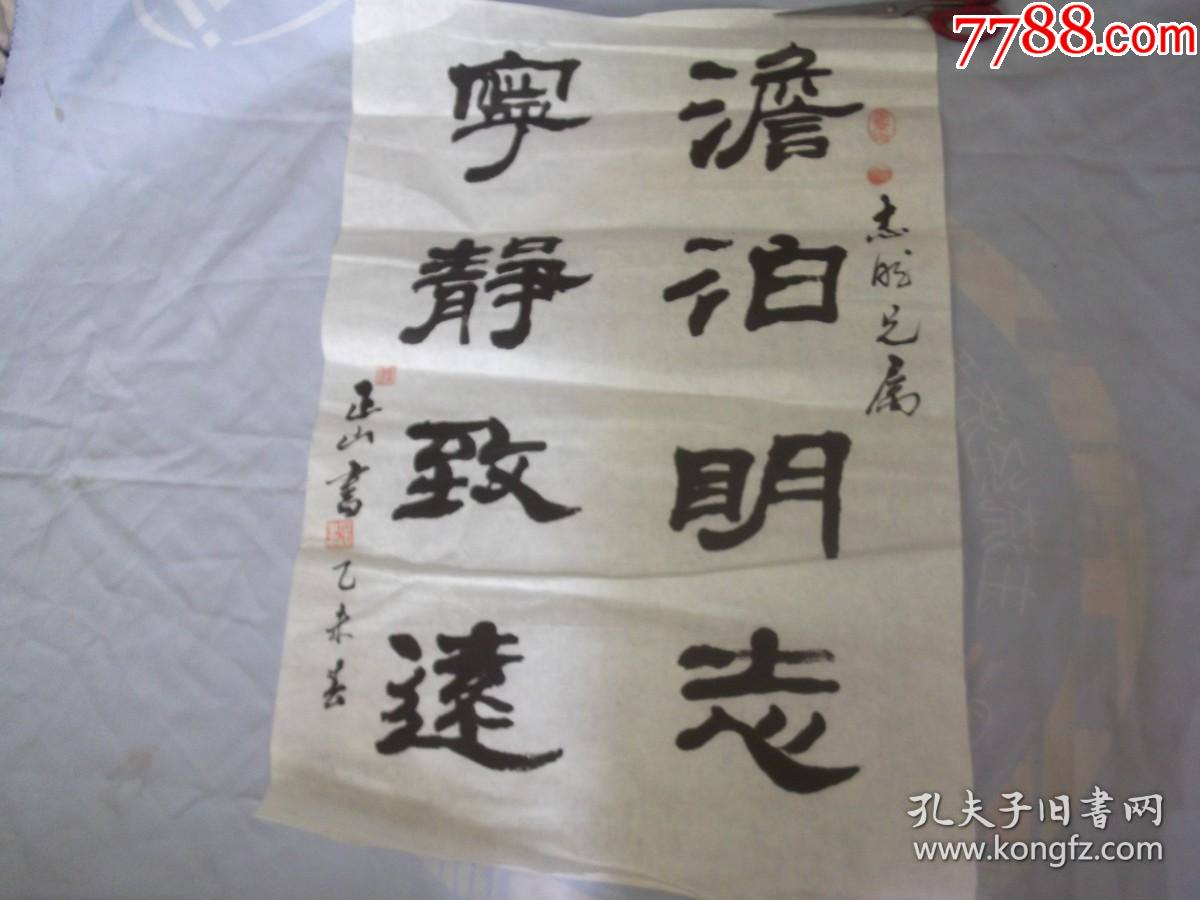 7788.com
志﻿兄属
澹泊明志
寧靜致遠
正山書
乙未春
孔夫子旧书网
www.kongfz.com